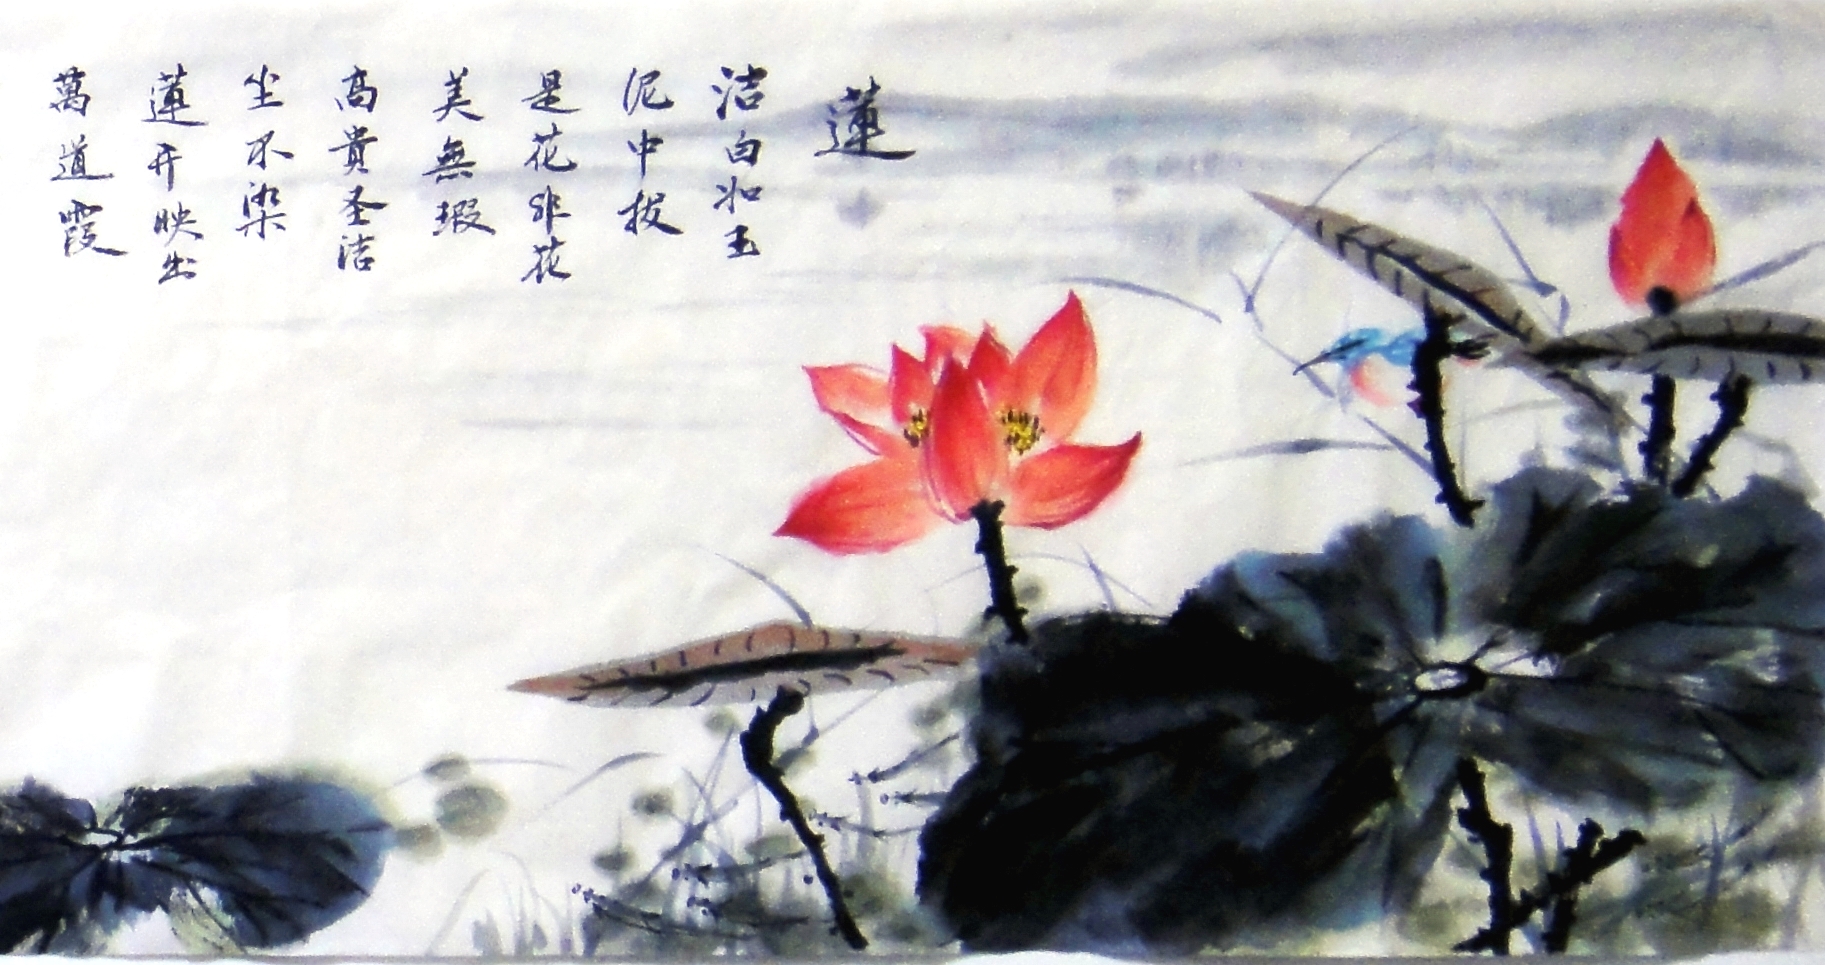 蓮
洁白如玉
泥中拔
是花非花
美無瑕
高貴圣洁
尘不染
蓮开映出
萬道霞